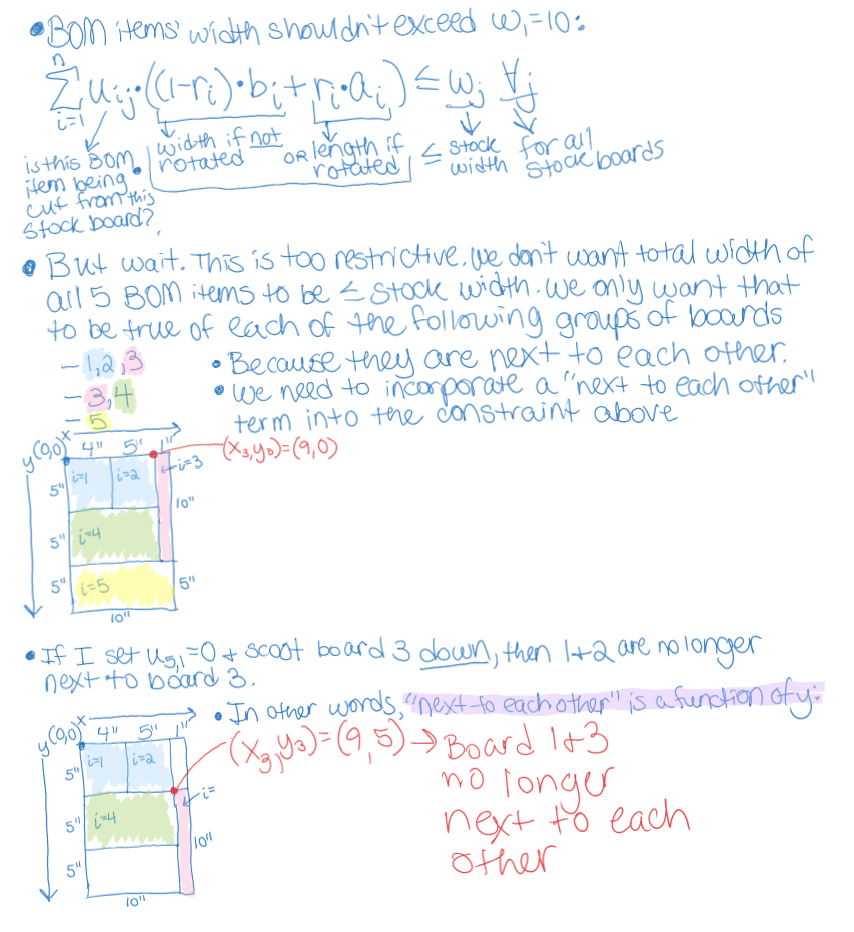 • BOM items' width shouldn't exceed w₁=10:
n
∑ uᵢⱼ·((1-rᵢ)·bᵢ+rᵢ·aᵢ) ≤ wⱼ ∀ⱼ
i=1
is this BOM
item being
cut from this
stock board?
width if not
rotated
OR length if
rotated
≤ stock
width
for all
stock boards
• But wait. This is too restrictive. We don't want total width of
all 5 BOM items to be ≤ stock width. We only want that
to be true of each of the following groups of boards
- 1,2,3
- 3,4
- 5
• Because they are next to each other.
• We need to incorporate a "next to each other"
term into the constraint above
(0,0) x
y
4" 5" 1"
(x₃,y₃)=(9,0)
5" i=1 i=2 i=3
10"
5" i=4
5" i=5 5"
10"
• If I set u₅,₁=0 + scoot board 3 down, then 1+2 are no longer
next to board 3.
• In other words, "next to each other" is a function of y:
(0,0) x
y
4" 5" 1"
(x₃,y₃)=(9,5) → Board 1+3
no longer
next to each
other
5" i=1 i=2
i=
5" i=4
10"
5"
10"